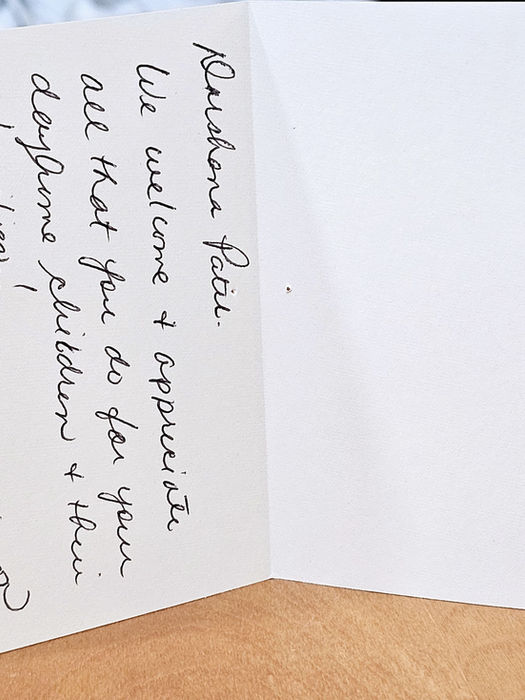 Darshana Patil.
We welcome + appreciate
all that you do for your
daytime children + their